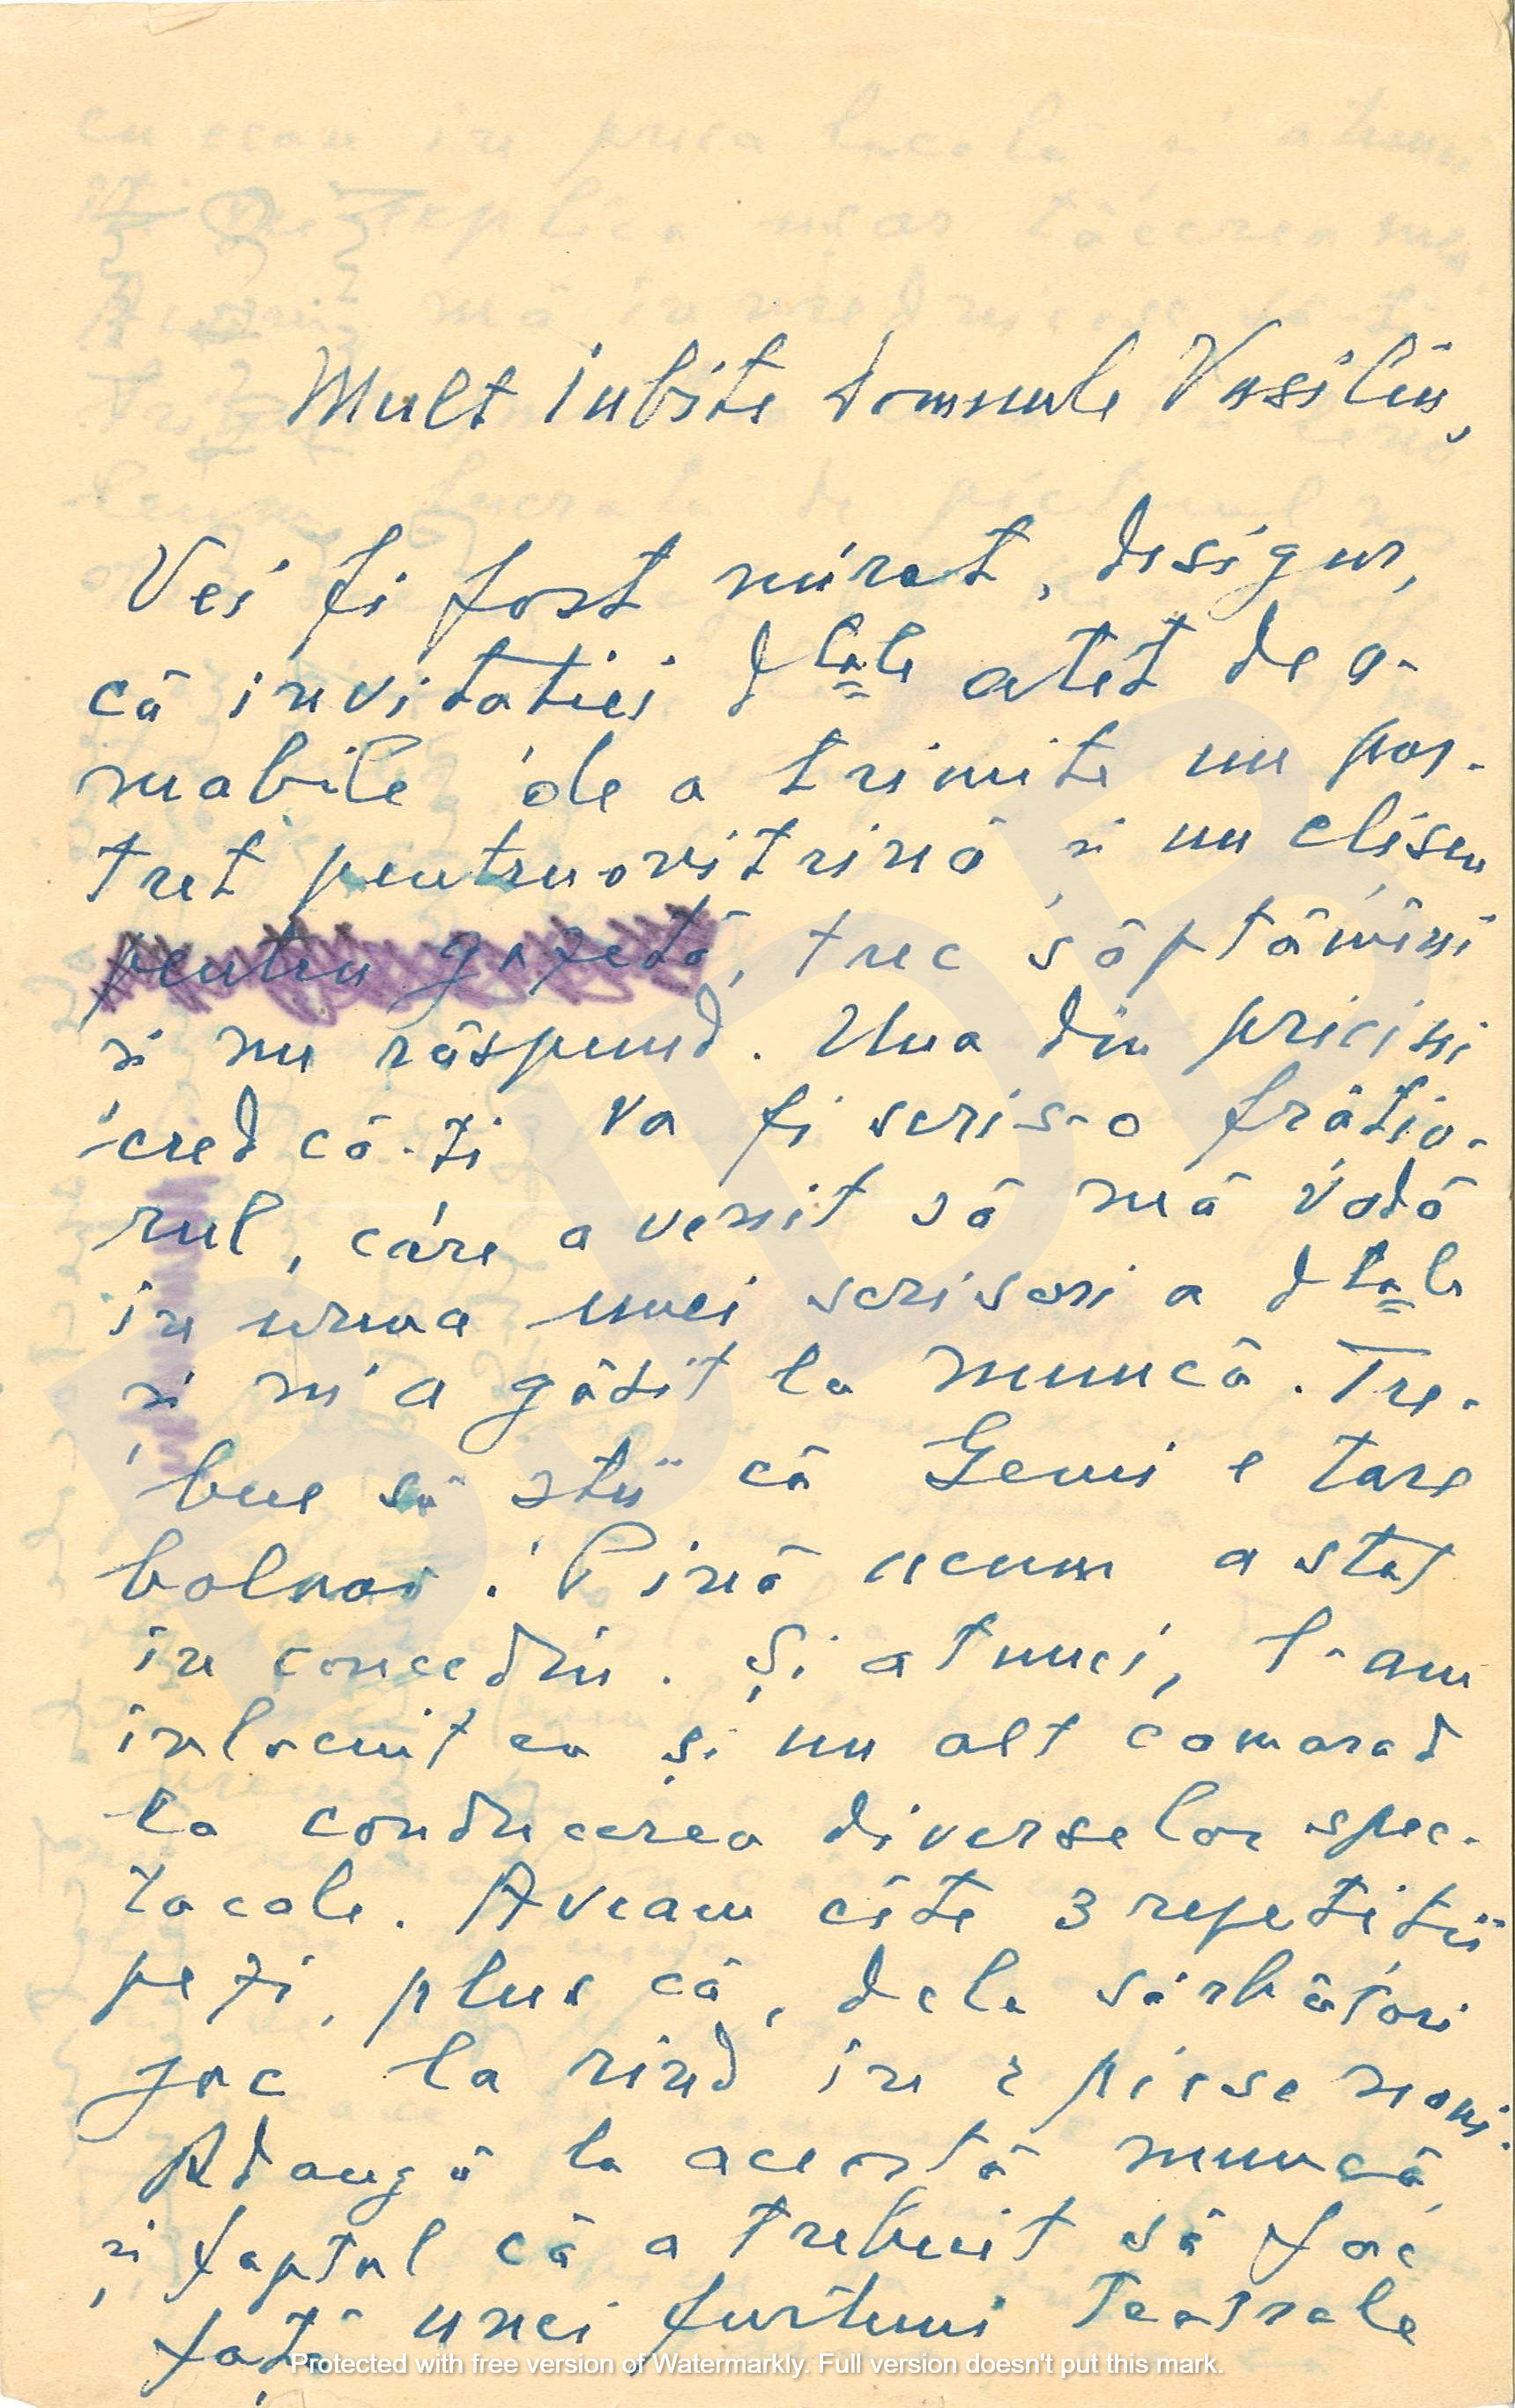 Mult iubite domnule Vasiliu,
Vei fi fost mirat, desigur,
că invitației dtale atît de a-
mabile de a trimite un por-
tret pentru o vitrină și un clișeu
pentru gazetă, trec săptămîni
și nu răspund. Una din pricini
cred că-ți va fi scris-o frățio-
rul, care a venit să mă vadă
în urma unei scrisori a dtale
și m'a găsit la muncă. Tre-
bue să știi că Gemi e tare
bolnav. Pînă acum a stat
în concediu. Și atunci, l-am
înlocuit eu și un alt camarad
la conducerea diverselor spec-
tacole. Aveam cîte 3 repetiții
pe zi, plus că, dela sărbători
joc la rînd în 2 piese noui.
Adaugă la această muncă,
și faptul că a trebuit să fac
față unei furtuni teatrale
BJDB
Protected with free version of Watermarkly. Full version doesn't put this mark.